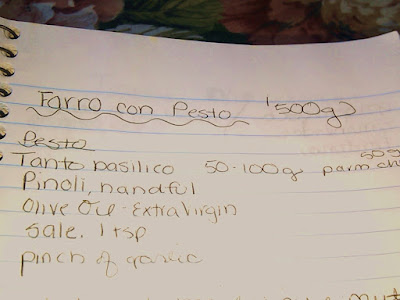 Farro con Pesto (500g)
Pesto
50g
Tanto basilico 50-100g parm ch
Pinoli, handful
Olive Oil - Extra Virgin
Sale. 1 tsp
pinch of garlic